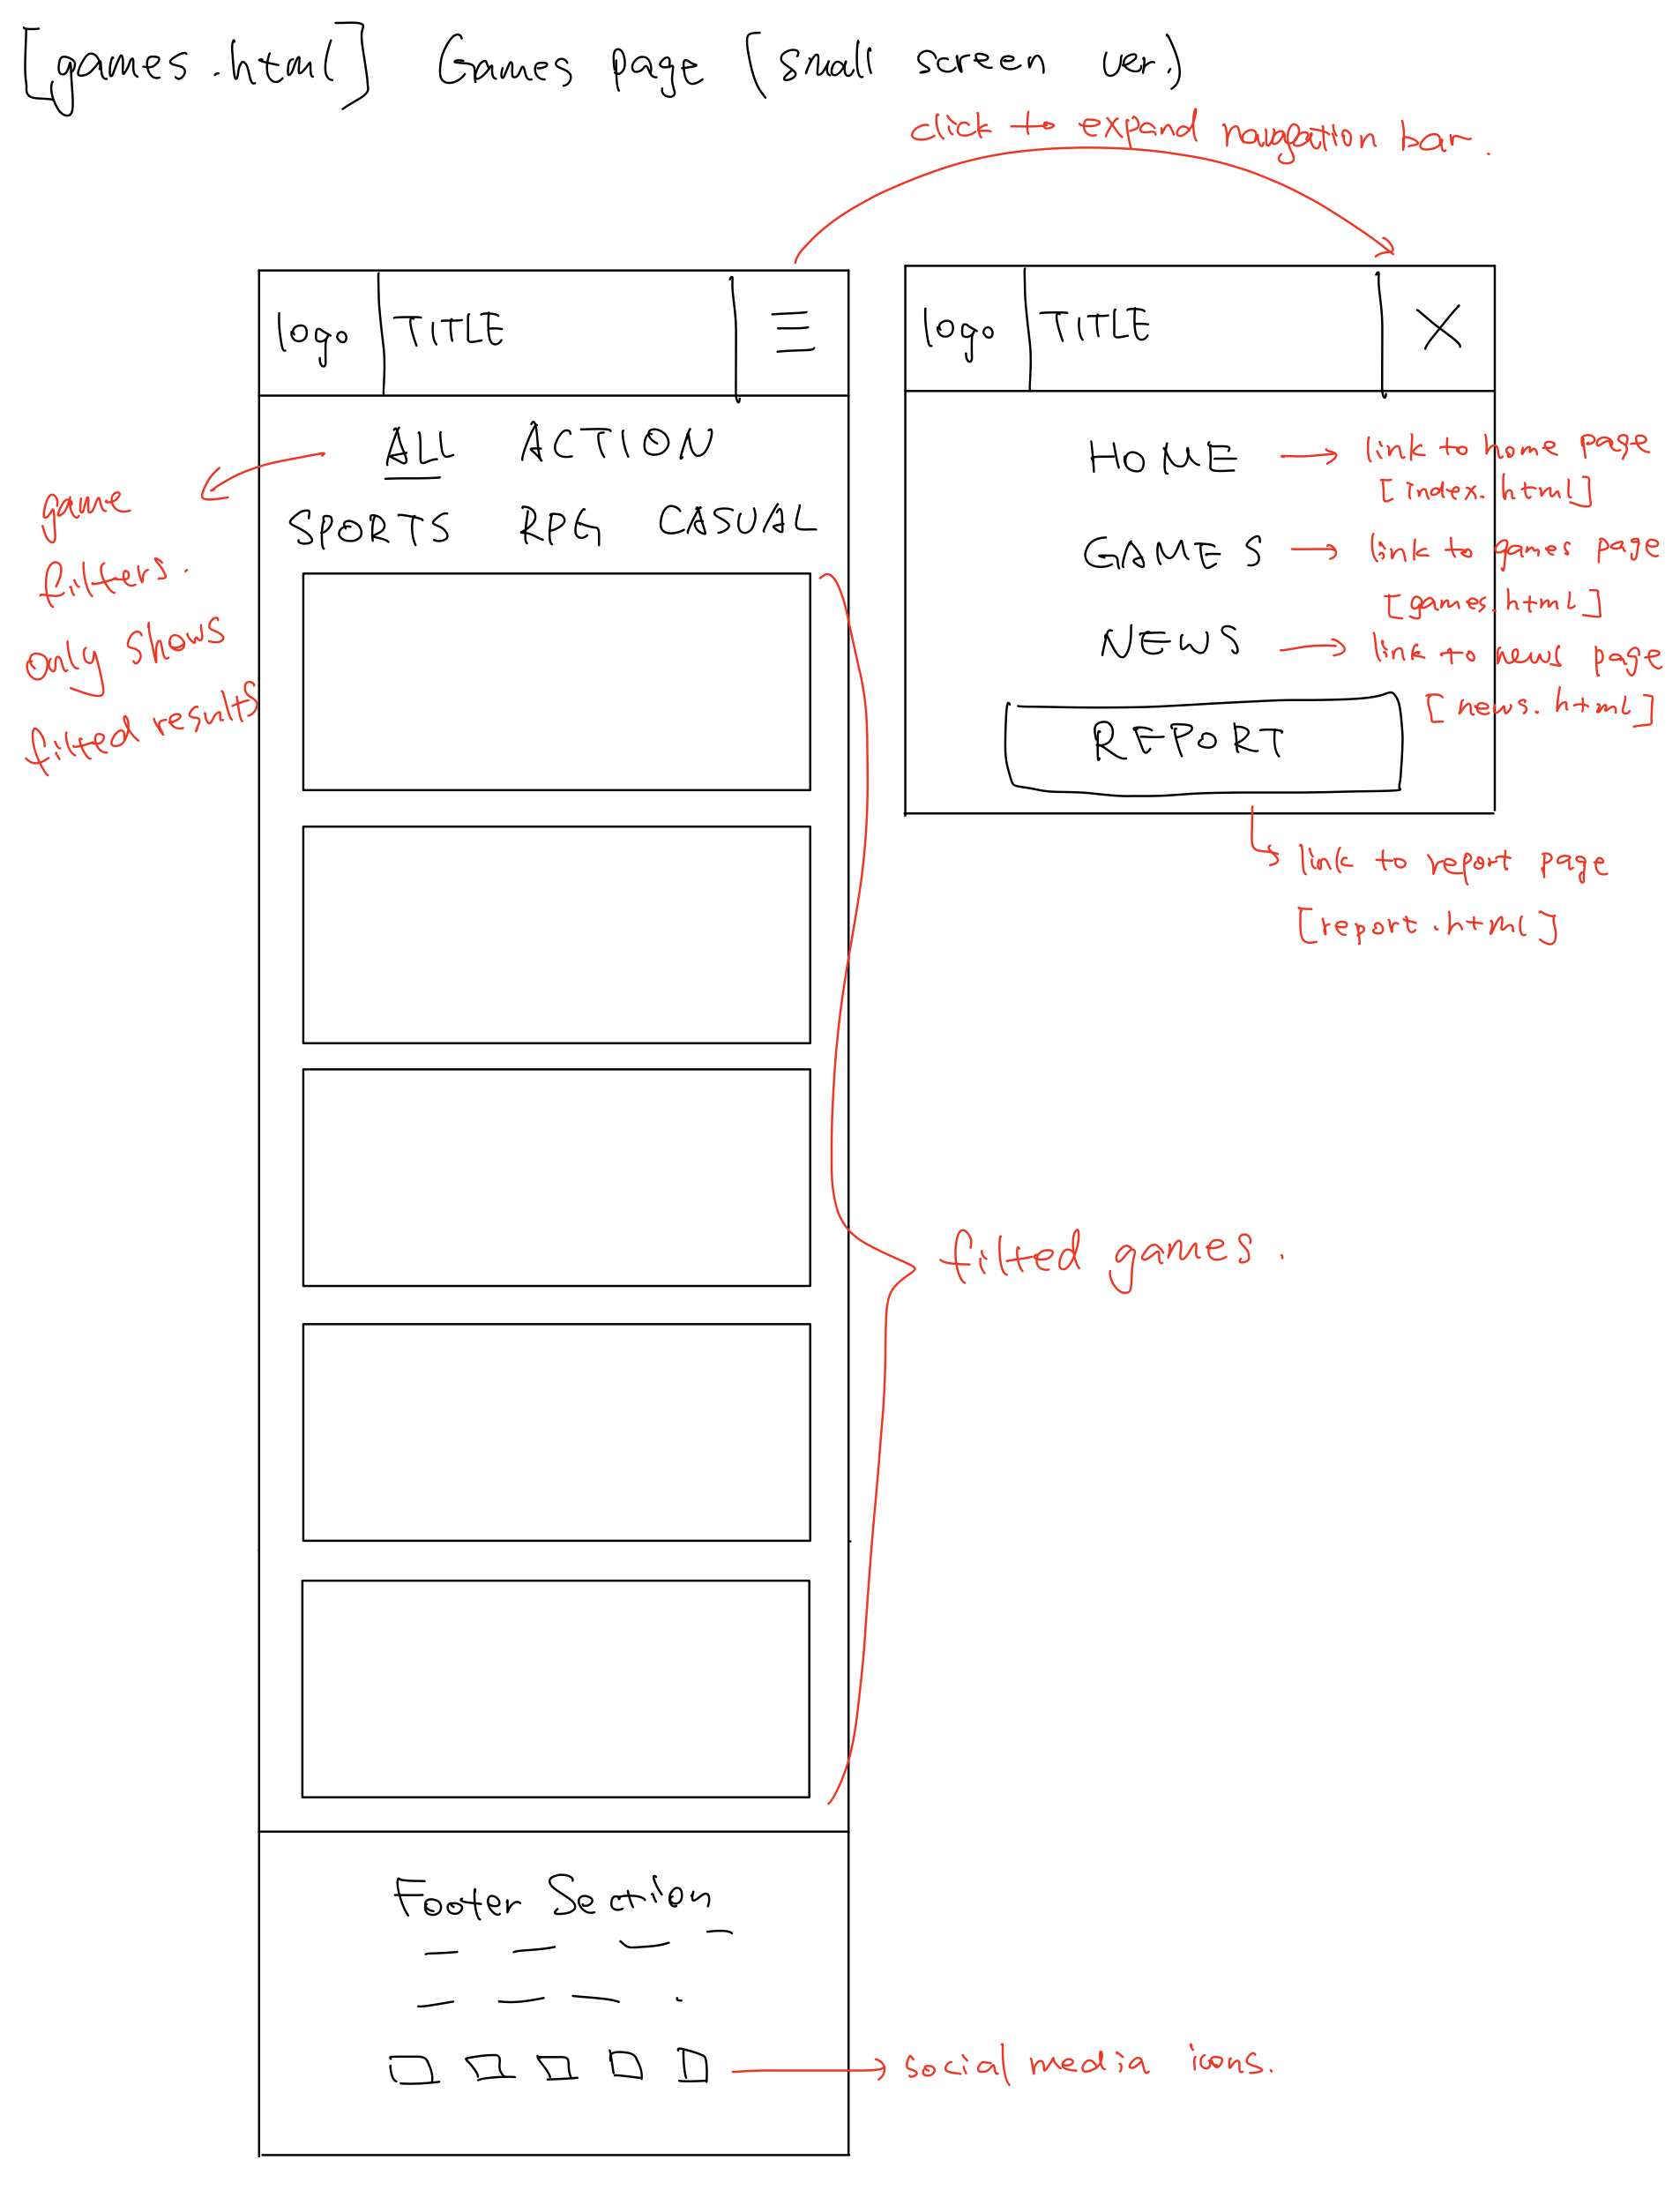 [games.html] Games page (small screen ver.)
click to expand navigation bar.
logo TITLE
ALL ACTION
SPORTS RPG CASUAL
game
filters.
only shows
filted results
filted games.
Footer Section
social media icons.
logo TITLE X
HOME
link to home page
[index.html]
GAMES
link to games page
[games.html]
NEWS
link to news page
[news.html]
REPORT
link to report page
[report.html]